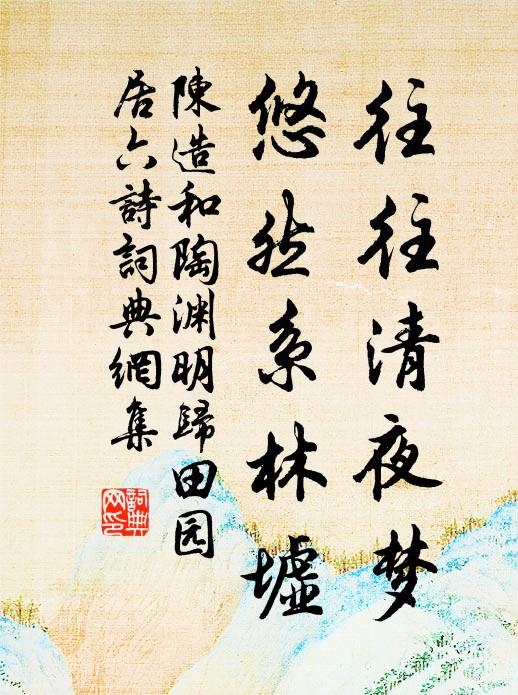 往往清夜梦
悠然系林墟
陳造和陶渊明歸田园
居六詩詞典網集
詞典
网印